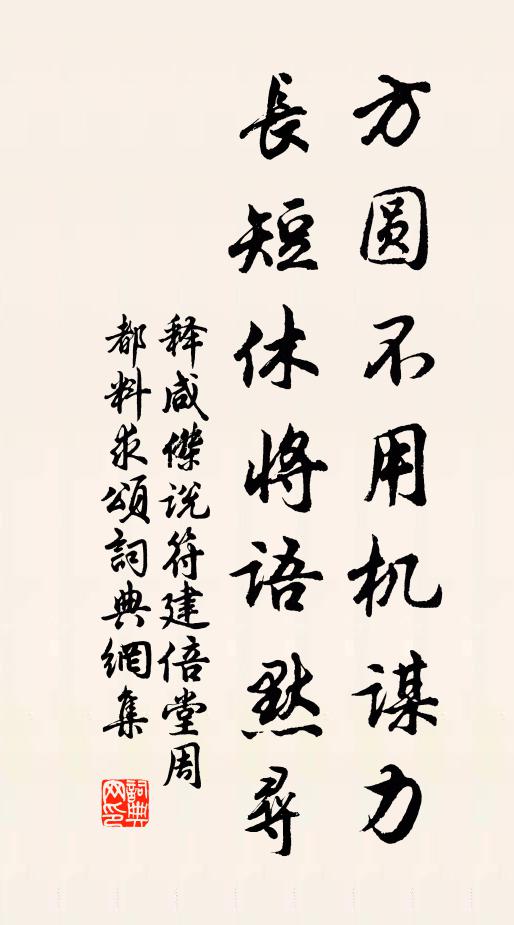 方圆不用机谋力
長短休将语默尋
释咸傑说符建倍堂周
都料求頌詞典網集
詞典
网印